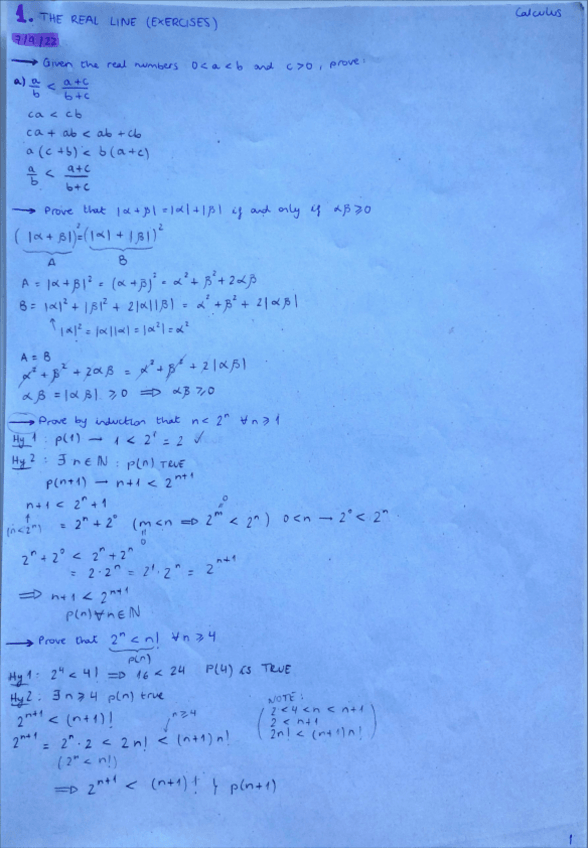 1. THE REAL LINE (EXERCISES)
Calculus
7/9/22
→ Given the real numbers 0<a<b and c>0, prove:
a) a/b < (a+c)/(b+c)
ca < cb
ca + ab < ab + cb
a(c+b) < b(a+c)
a/b < (a+c)/(b+c)
→ Prove that |α+β|=|α|+|β| if and only if αβ⩾0
(|α+β|)² = (|α|+|β|)²
A B
A = |α+β|² = (α+β)² = α² + β² + 2αβ
B = |α|² + |β|² + 2|α||β| = α² + β² + 2|αβ|
↑ |α|² = |α||α| = |α²| = α²
A = B
α² + β² + 2αβ = α² + β² + 2|αβ|
αβ = |αβ| ⩾0 ⟹ αβ⩾0
→ Prove by induction that n<2ⁿ ∀n⩾1
Hy 1: p(1) → 1 < 2¹ = 2 ✓
Hy 2: ∃n∈ℕ : p(n) TRUE
p(n+1) → n+1 < 2ⁿ⁺¹
n+1 < 2ⁿ+1
(n<2ⁿ) = 2ⁿ + 2⁰ (m<n ⟹ 2ᵐ < 2ⁿ) 0<n → 2⁰ < 2ⁿ
2ⁿ + 2⁰ < 2ⁿ + 2ⁿ
= 2·2ⁿ = 2¹·2ⁿ = 2ⁿ⁺¹
⟹ n+1 < 2ⁿ⁺¹
p(n)∀n∈ℕ
→ Prove that 2ⁿ < n! ∀n⩾4
p(n)
Hy 1: 2⁴ < 4! ⟹ 16 < 24 P(4) is TRUE
Hy 2: ∃n⩾4 p(n) true
NOTE:
2<4<n<n+1
2<n+1
2n! < (n+1)n!
2ⁿ⁺¹ < (n+1)!
n⩾4
2ⁿ⁺¹ = 2ⁿ·2 < 2n! < (n+1)n!
(2ⁿ<n!)
⟹ 2ⁿ⁺¹ < (n+1)! } p(n+1)
1